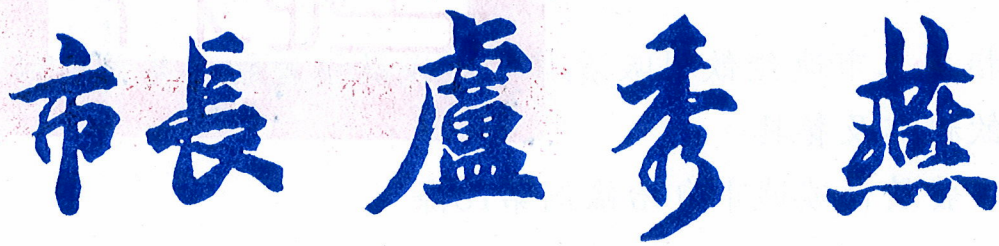 市長盧秀燕